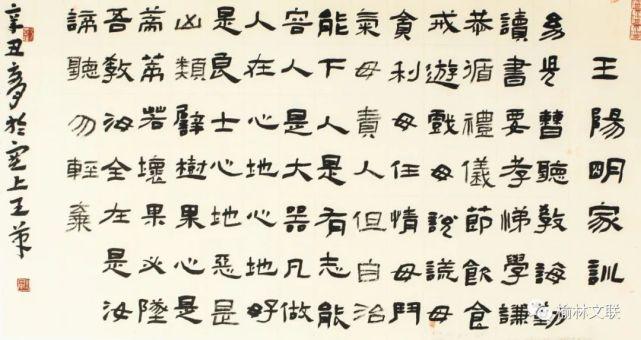 王陽明家訓
幼兒曹聽教誨勤
讀書要孝悌學謙
恭循禮儀節飲食
戒遊戲毋說謊毋
貪利毋任情毋鬥
氣毋責人但自治
能下人是有志能
容人是大器凡做
人在心地心地好
是良士心地惡是
凶類譬樹果心是
蒂蒂若壞果必墜
吾教汝全在是汝
諦聽勿輕棄
辛丑夏於塞上王
榆林文联